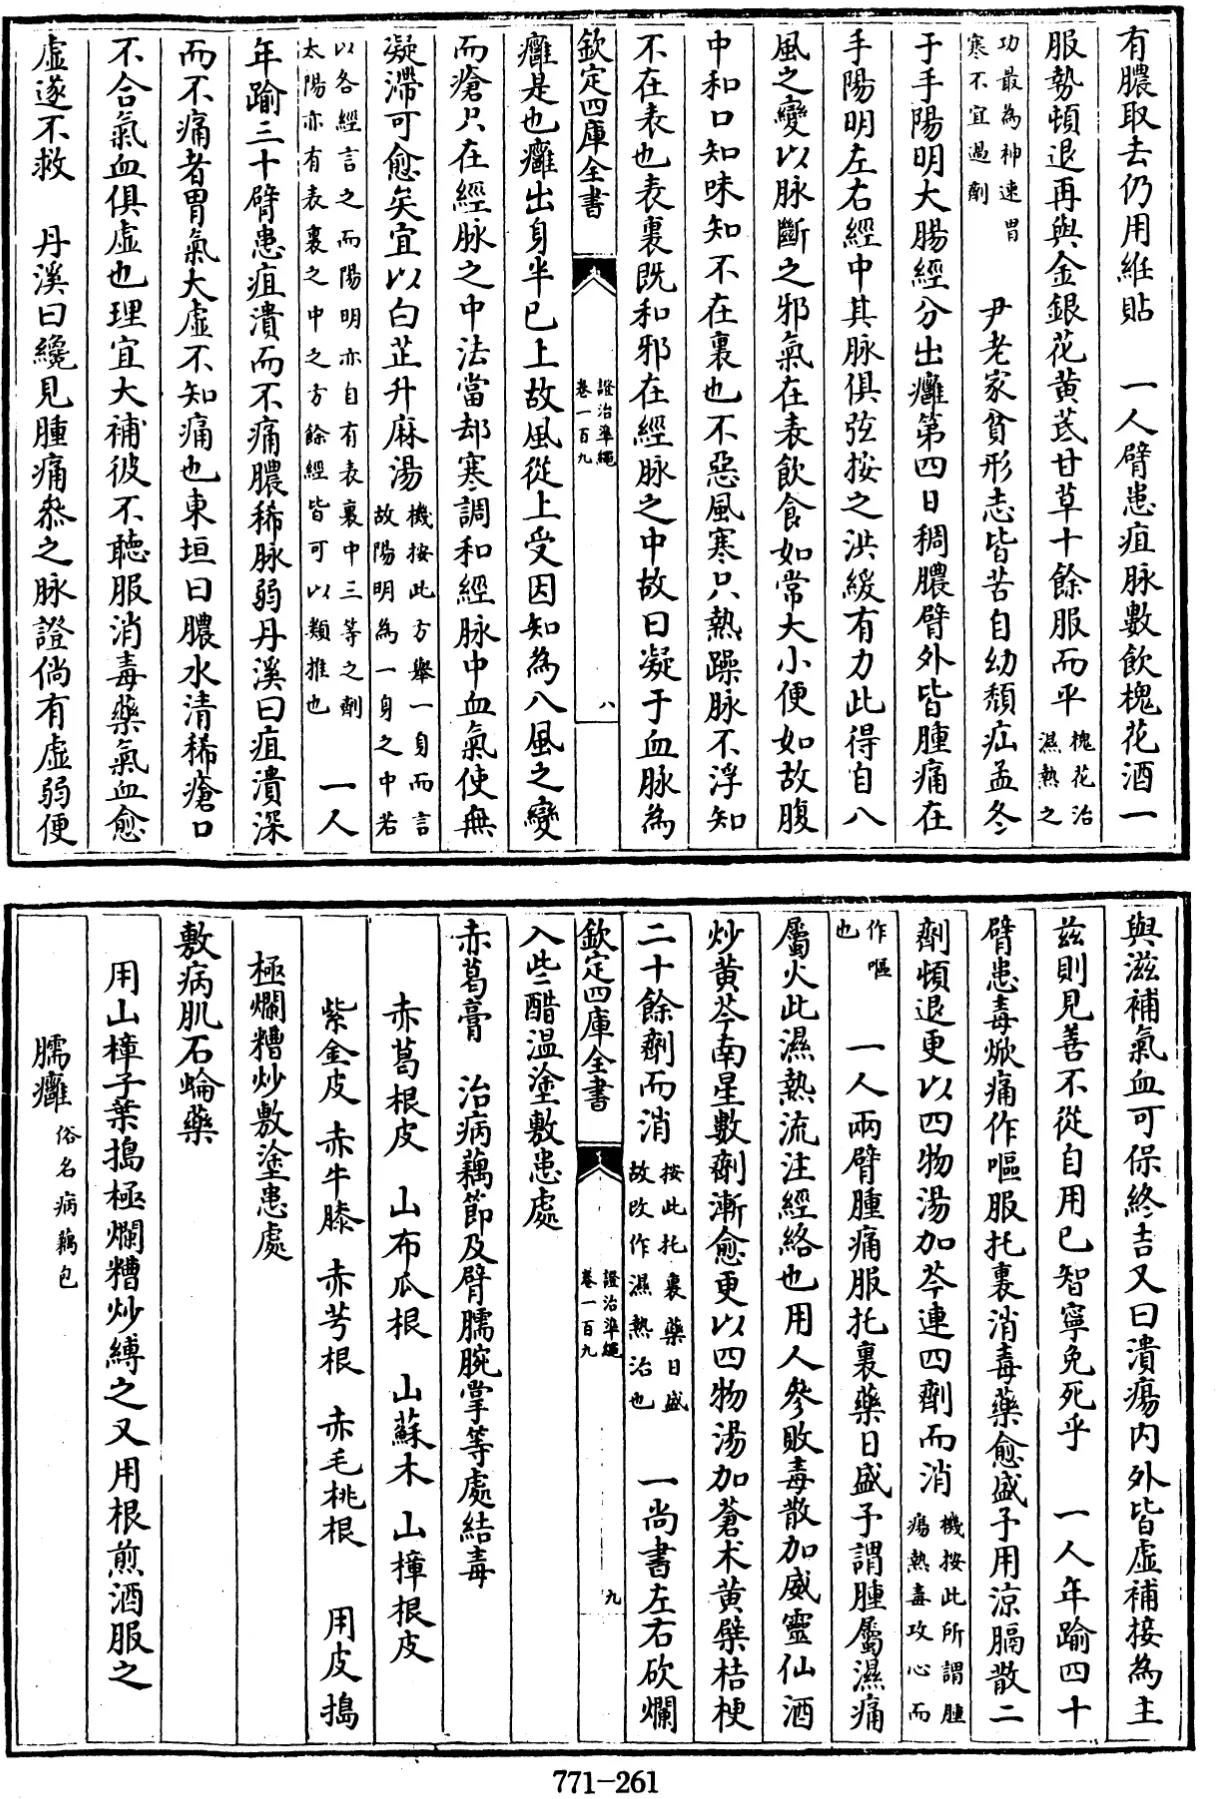 有膿取去仍用維貼　一人臂患疽脉數飲槐花酒一
服勢頓退再與金銀花黄茋甘草十餘服而平槐花治濕熱之
功最為神速胃寒不宜過劑　尹老家貧形志皆苦自幼頽疝孟冬
于手陽明大腸經分出癰第四日稠膿臂外皆腫痛在
手陽明左右經中其脉俱弦按之洪緩有力此得自八
風之變以脉斷之邪氣在表飲食如常大小便如故腹
中和口知味知不在裏也不惡風寒只熱躁脉不浮知
不在表也表裏既和邪在經脉之中故曰凝于血脉為
欽定四庫全書
證治凖繩
卷一百九
八
癰是也癰出身半已上故風從上受因知為八風之變
而瘡只在經脉之中法當却寒調和經脉中血氣使無
凝滯可愈矣宜以白芷升麻湯機按此方舉一身而言故陽明為一身之中若
以各經言之而陽明亦自有表裏中三等之劑太陽亦有表裏之中之方餘經皆可以類推也　一人
年踰三十臂患疽潰而不痛膿稀脉弱丹溪曰疽潰深
而不痛者胃氣大虚不知痛也東垣曰膿水清稀瘡口
不合氣血俱虚也理宜大補彼不聽服消毒藥氣血愈
虚遂不救　丹溪曰纔見腫痛叅之脉證倘有虚弱便
與滋補氣血可保終吉又曰潰瘍内外皆虚補接為主
兹則見善不從自用已智寧免死乎　一人年踰四十
臂患毒焮痛作嘔服托裏消毒藥愈盛予用凉膈散二
劑頓退更以四物湯加芩連四劑而消機按此所謂腫瘍熱毒攻心而
作嘔也　一人兩臂腫痛服托裏藥日盛予謂腫屬濕痛
屬火此濕熱流注經絡也用人參敗毒散加威靈仙酒
炒黄芩南星數劑漸愈更以四物湯加蒼术黄檗桔梗
二十餘劑而消按此托裏藥日盛故改作濕熱治也　一尚書左右砍爛
欽定四庫全書
證治凖繩
卷一百九
九
入些醋温塗敷患處
赤葛膏　治病藕節及臂臑腕掌等處結毒
赤葛根皮　山布瓜根　山蘇木　山樟根皮
紫金皮　赤牛膝　赤芍根　赤毛桃根　用皮搗
極爛糟炒敷塗患處
敷病肌石蜦藥
用山樟子葉搗極爛糟炒縛之又用根煎酒服之
臑癰俗名病藕包
771-261